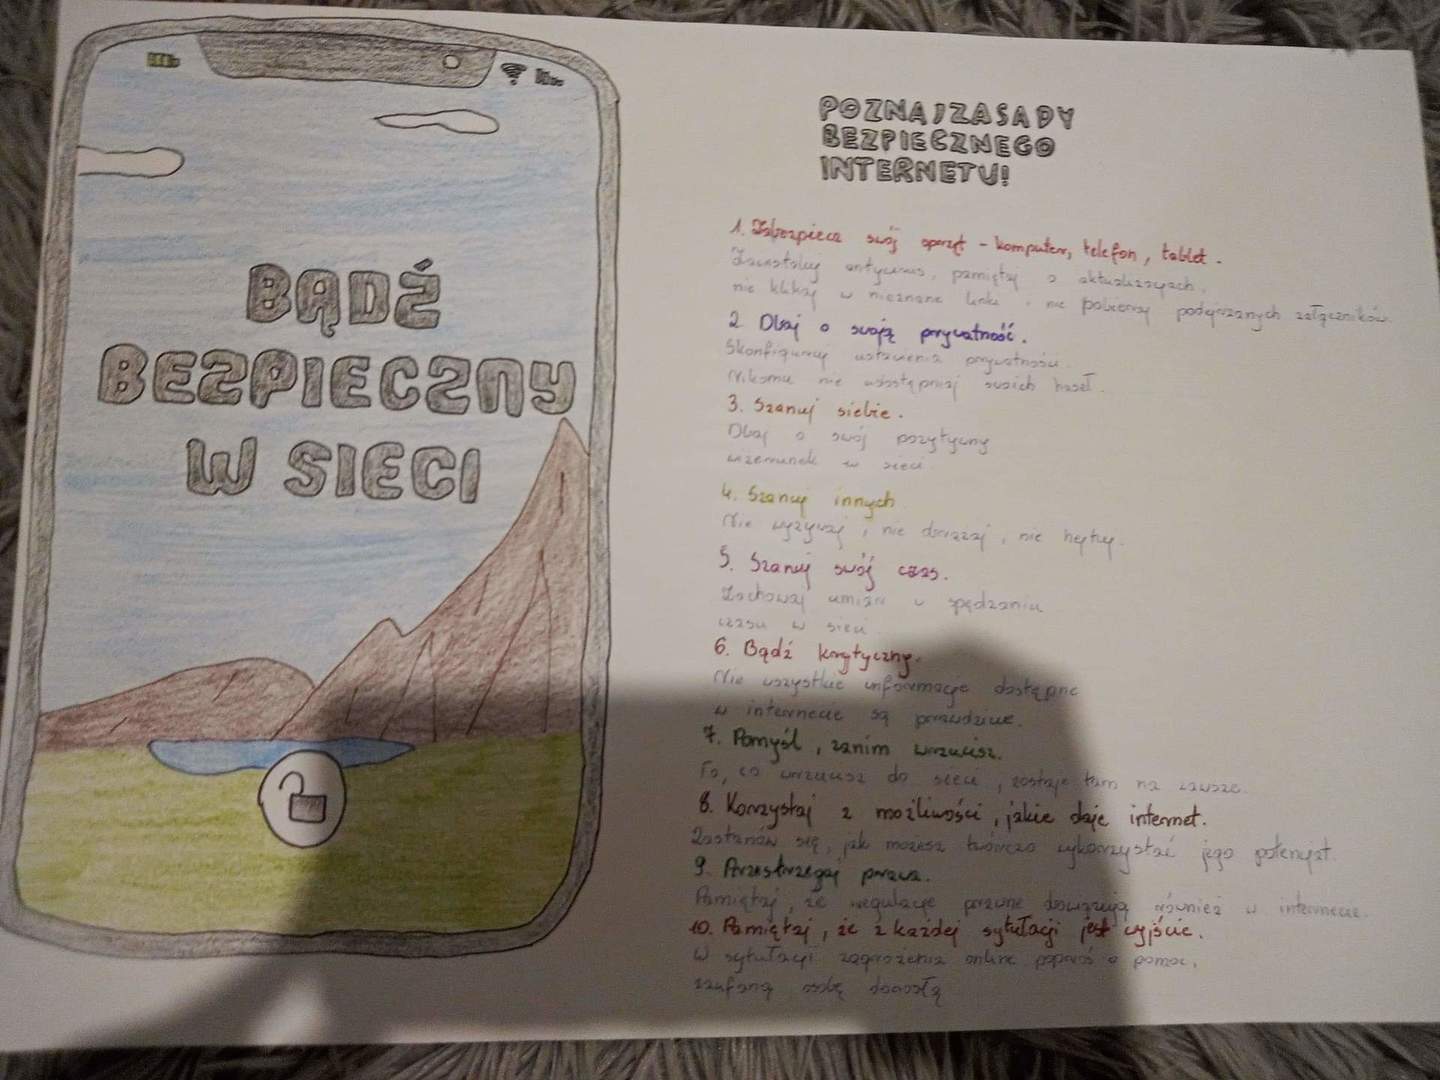 BĄDŹ
BEZPIECZNY
W SIECI
POZNAJ ZASADY
BEZPIECZNEGO
INTERNETU!
1. Zabezpiecz swój sprzęt - komputer, telefon, tablet.
Zainstaluj antywirus, pamiętaj o aktualizacjach,
nie klikaj w nieznane linki i nie pobieraj podejrzanych załączników.
2 Dbaj o swoją prywatność.
Skonfiguruj ustawienia prywatności.
Nikomu nie udostępniaj swoich haseł.
3. Szanuj siebie.
Dbaj o swój pozytywny
wizerunek w sieci
4. Szanuj innych
Nie wyzywaj, nie dokuczaj, nie hejtuj.
5. Szanuj swój czas.
Zachowaj umiar w spędzaniu
czasu w sieci
6. Bądź krytyczny.
Nie wszystkie informacje dostępne
w internecie są prawdziwe.
7. Pomyśl, zanim wrzucisz.
To, co wrzucisz do sieci, zostaje tam na zawsze.
8. Korzystaj z możliwości, jakie daje internet.
Zastanów się, jak możesz twórczo wykorzystać jego potencjał.
9. Przestrzegaj prawa.
Pamiętaj, że regulacje prawne obowiązują również w internecie.
10. Pamiętaj, że z każdej sytułacji jest wyjście.
W sytułacji zagrożenia online poproś o pomoc,
zaufaną osobę dorosłą